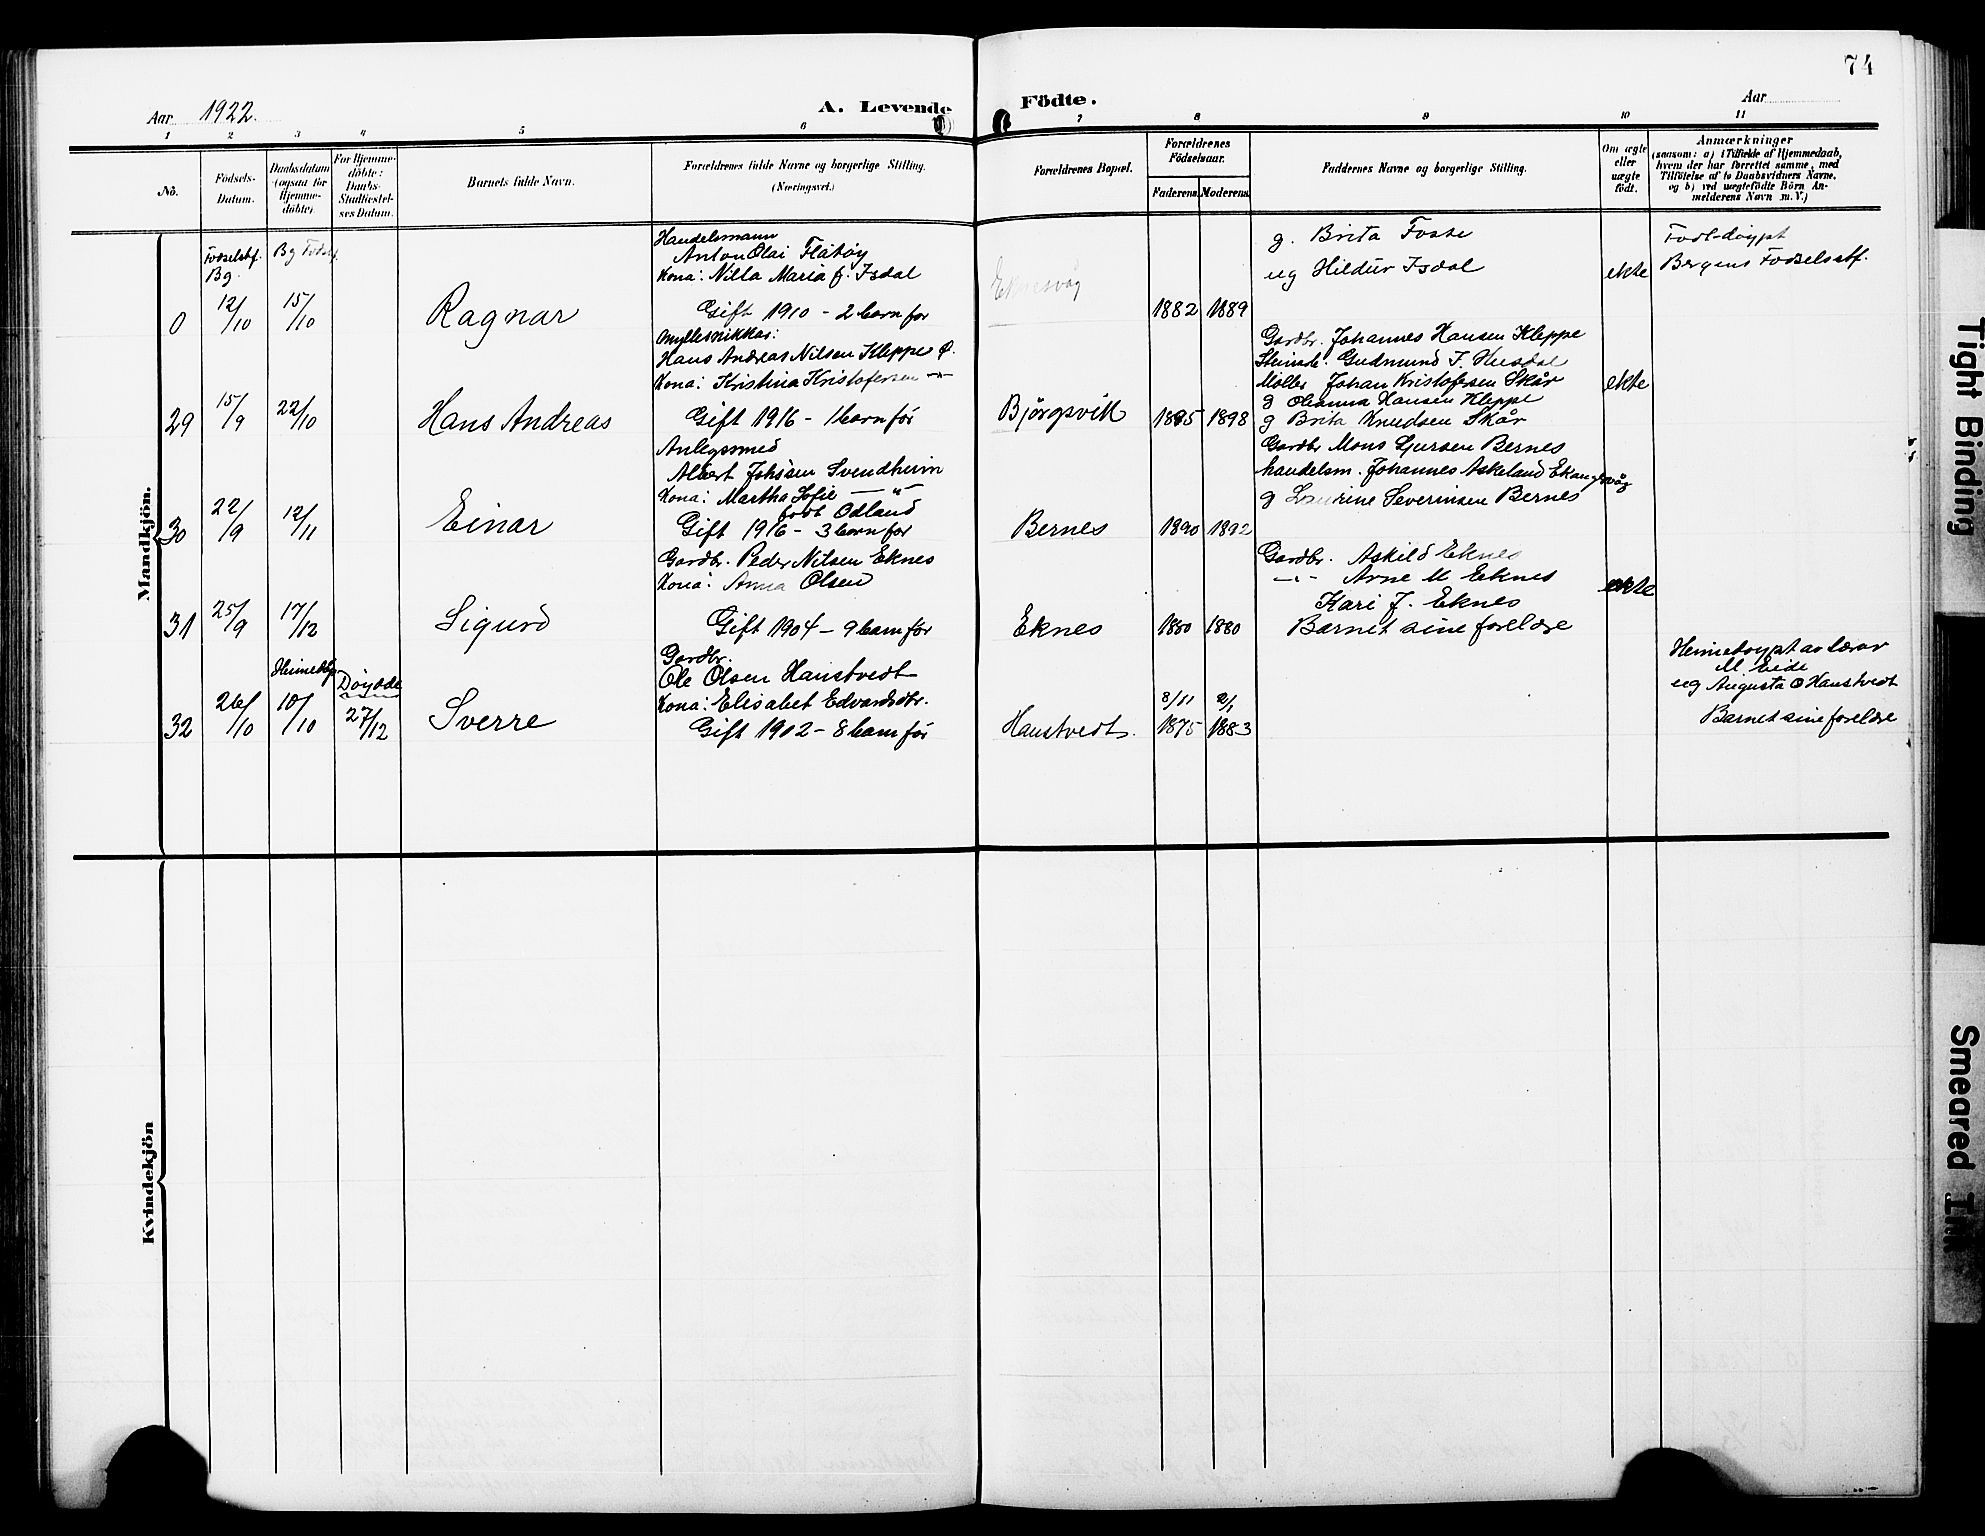 74
Aar 1922.
A. Levende Födte.
Aar
1 2 3 4 5 6 7 8 9 10 11
No.
Födsels-
Datum.
Daabsdatum
(ogsaa for
Hjemme-
döbte)
For Hjemme-
döbte:
Daabs-
Stadfæstel-
ses Datum.
Barnets fulde Navn.
Forældrenes fulde Navne og borgerlige Stilling.
(Næringsvei.)
Forældrenes Bopæl.
Forældrenes
Födselsaar.
Faderens. Moderens.
Faddernes Navne og borgerlige Stilling.
Om ægte
eller
uægte
födt.
Anmærkninger
(saasom: a) i Tilfælde af Hjemmedaab,
hvem der har forrettet samme, med
Tilföielse af to Daabsvidners Navne,
og b) ved uægtefödte Börn An-
melderens Navn m. V.)
Mandkjön.
Fodselsstf.
Bg.
Bg Fodsf.
0
12/10
15/10
Ragnar
Handelsmann
Anton Olai Flatøy
Kona: Nilla Maria f. Isdal
Gift 1910 - 2 born for
Eknesvåg
1882 1889
g. Brita Foste
ug Hildur Isdal
ekte
Fodt-døypt
Bergens Fodselsstf.
29
15/9
22/10
Hans Andreas
Myllesnikkar:
Hans Andreas Nilsen Kleppe
Kona: Kristina Kristofersen
Gift 1916 - 1 born før
Bjørgsvik
1895 1898
Gardbr. Johannes Hansen Kleppe
Gudmund J. Husdal
Møller Johan Kristofersen Skår
g Olianna Hansen Kleppe
g Brita Knudsen Skår
ekte
30
22/9
12/11
Einar
Anlegssmed
Albert Johsen Svendheim
Kona: Martha Sofie — " —
fodt Odland
Gift 1916 - 3 born for
Bernes
1890 1892
Gardbr Mons Sjursen Bernes
handelsm. Johannes Askeland Eknesvåg
g Severinsen Bernes
31
25/9
17/12
Sigurd
Gardbr. Peder Nilsen Eknes
Kona: Anna Olsen
Gift 1904 - 9 born før
Eknes
1880 1880
Gardbr. Askild Eknes
—"— Arne M Eknes
Kari J. Eknes
Barnet sine foreldre
ekte
32
26/10
Heimedøy
10/10
Døydde
27/12
Sverre
Gardbr.
Ole Olsen Haustvedt
Kona: Elisabet Edvardsdtr.
Gift 1902 - 8 born før
Haustvedt.
8/11
1875 1883
Heimedøypt av lærar
M Eide
ug Augusta O Haustvedt
Barnet sine foreldre
Kvindekjön
Tight Binding
Smeared Ink